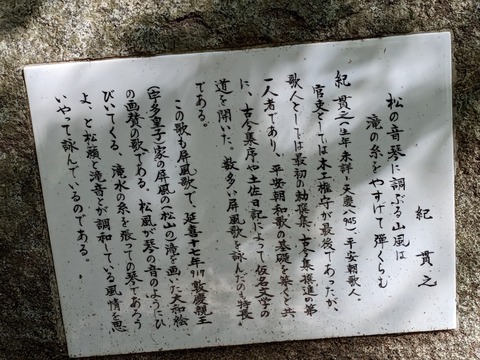 紀 貫之
松の音琴に調ぶる山風は
滝の糸をやすげて弾くらむ
紀 貫之(生年未詳-天慶八945)平安朝歌人
官吏としては木工権守が最後であったが、
歌人としては最初の勅撰集、古今集撰進の第
一人者であり、平安朝和歌の基礎を築くと共
に、古今集序や土佐日記によって仮名文学の
道を開いた。数多い屏風歌を詠んだのも特長
である。
この歌も屏風歌で、延喜十七年917敦慶親王
(宇多皇子)家の屏風の松山の滝を画いた大和絵
の画賛の歌である。松風が琴の音のようにひ
びいてくる、滝水の糸を張っての琴であろう
よ、と松籟と滝音とが調和している風情を思
いやって詠んでいるのである。